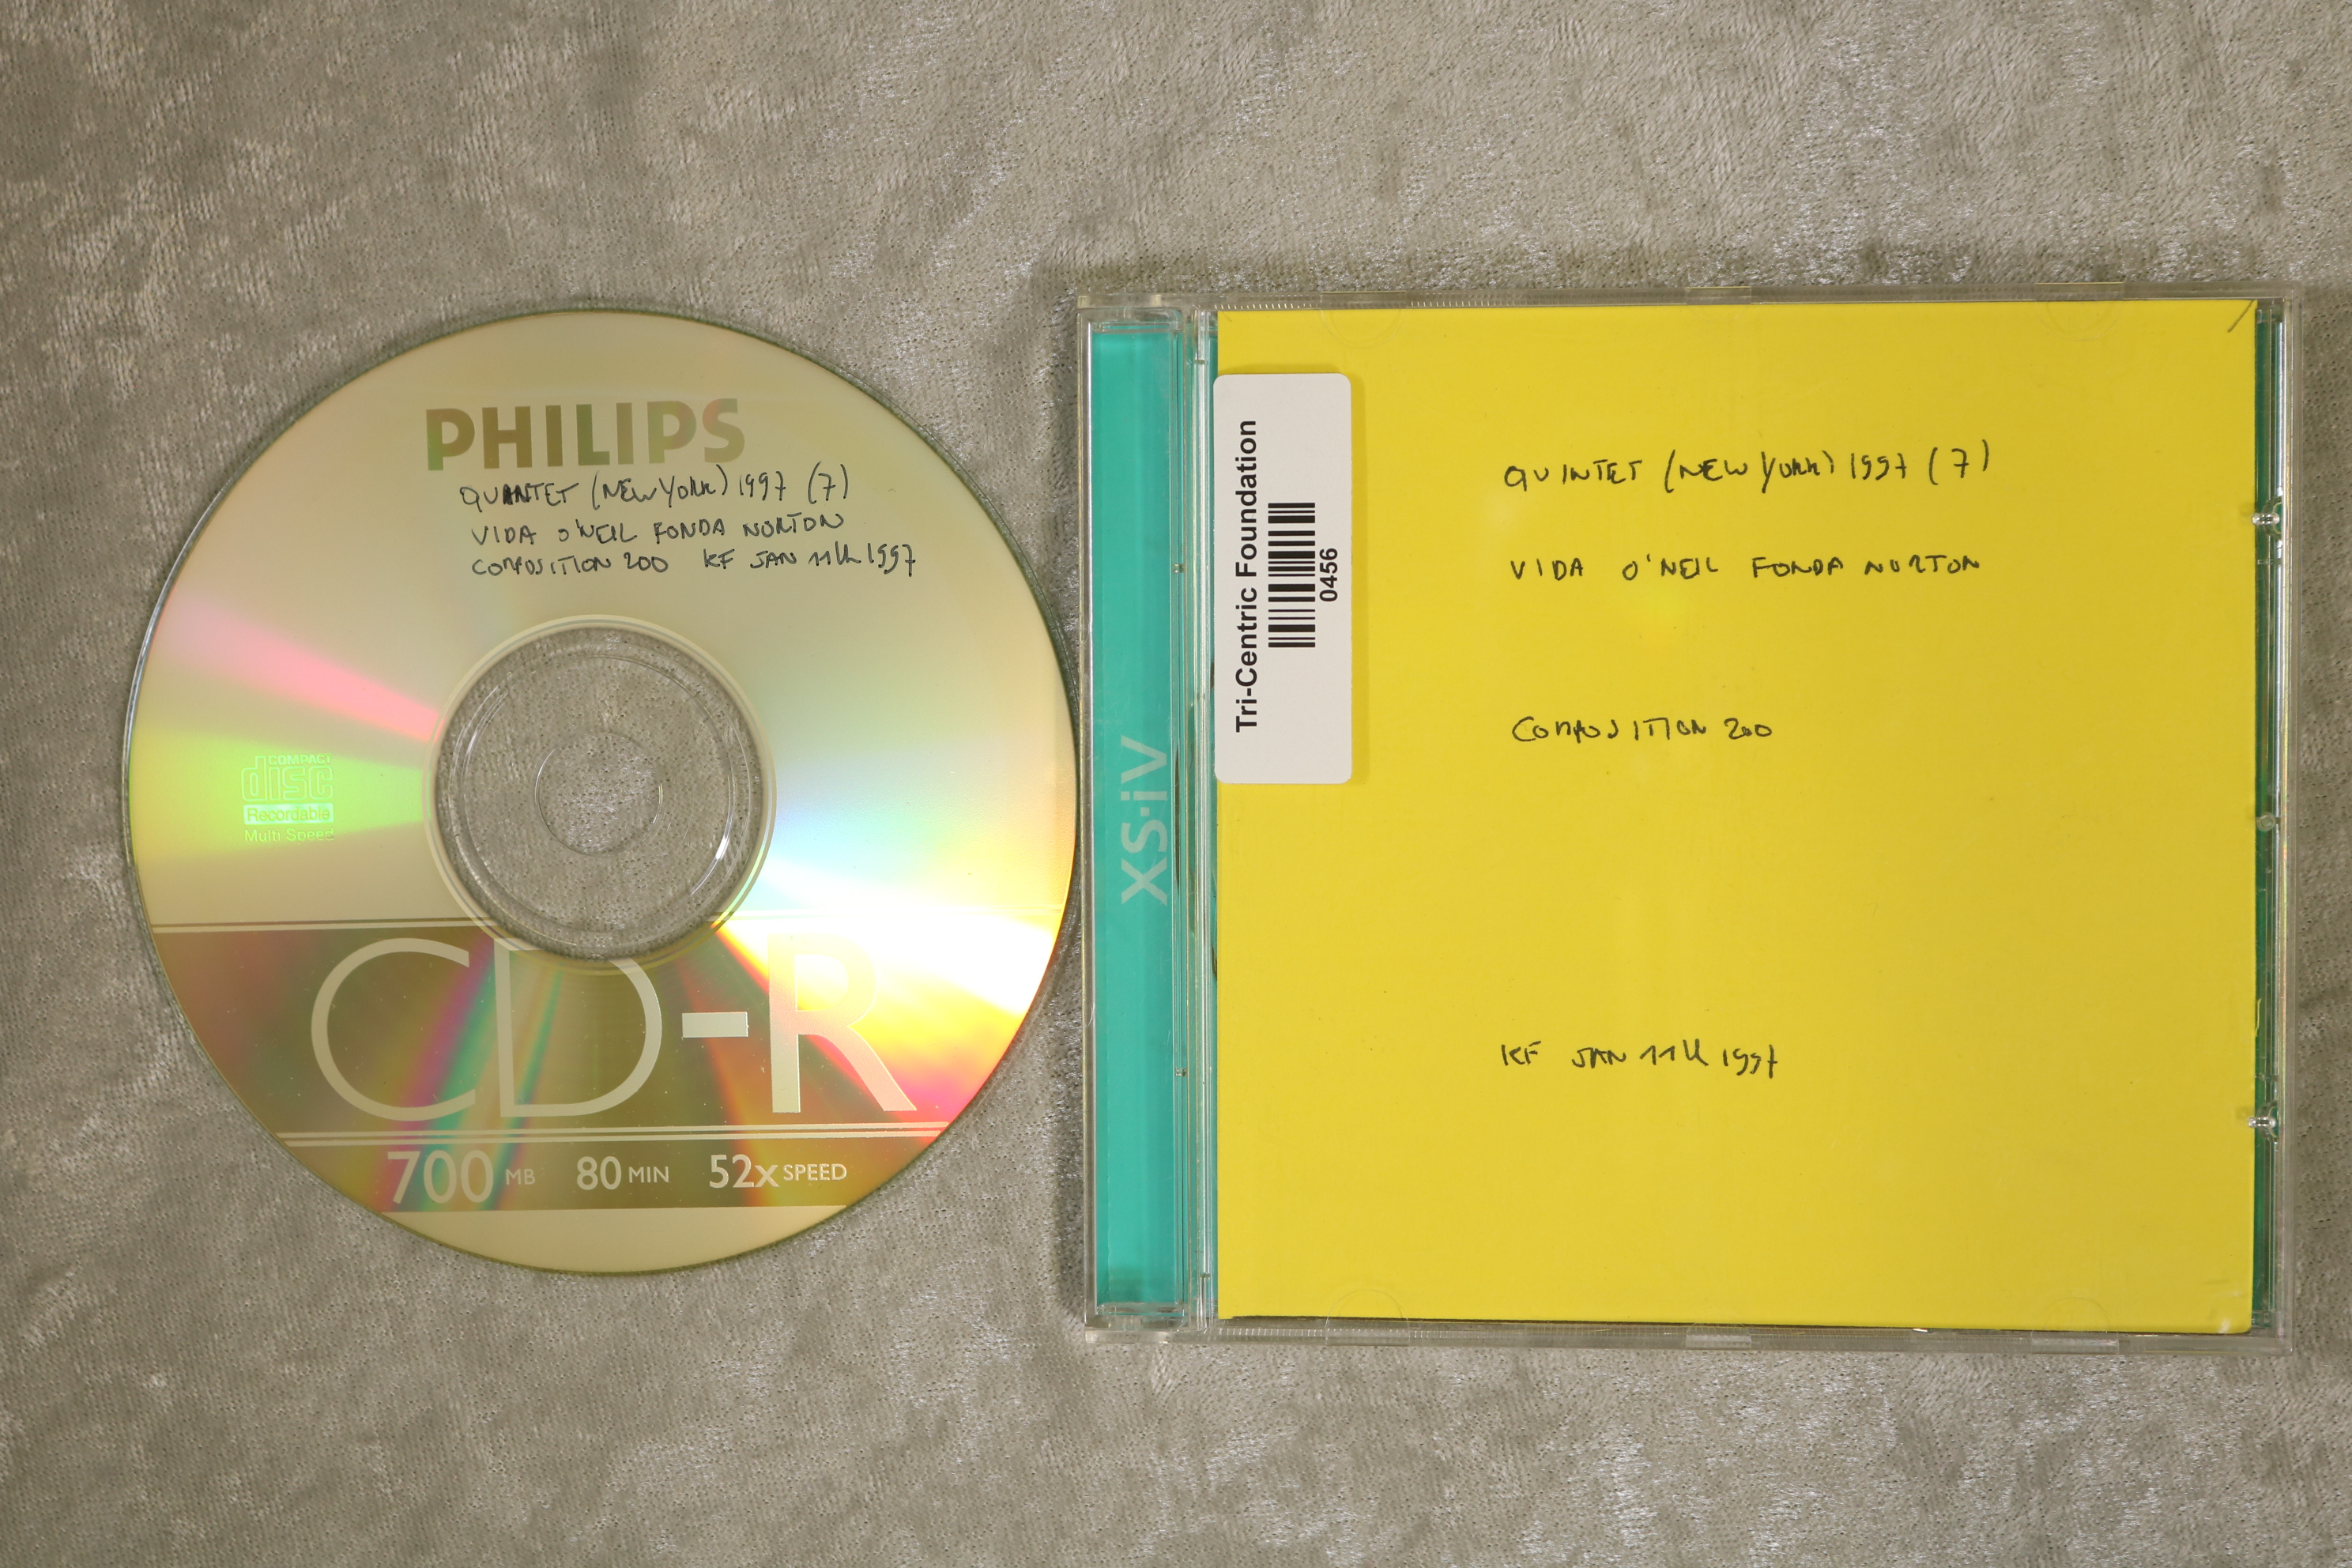 PHILIPS
QUINTET (NEW YORK) 1997 (7)
VIDA O'NEIL FONDA NORTON
COMPOSITION 200 KF JAN 11th 1997
COMPACT
disc
Recordable
Multi Speed
CD-R
700 MB 80 MIN 52x SPEED
XS·iV
Tri-Centric Foundation
0456
QUINTET (NEW YORK) 1997 (7)
VIDA O'NEIL FONDA NORTON
COMPOSITION 200
KF JAN 11th 1997